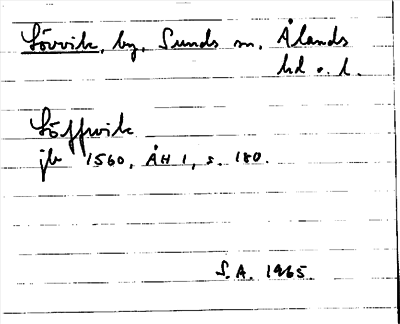 Lövvik, by, Sunds sn, Ålands
hd o. l.
Löffwik
jb 1560, ÅH 1, s. 180.
S.A. 1965